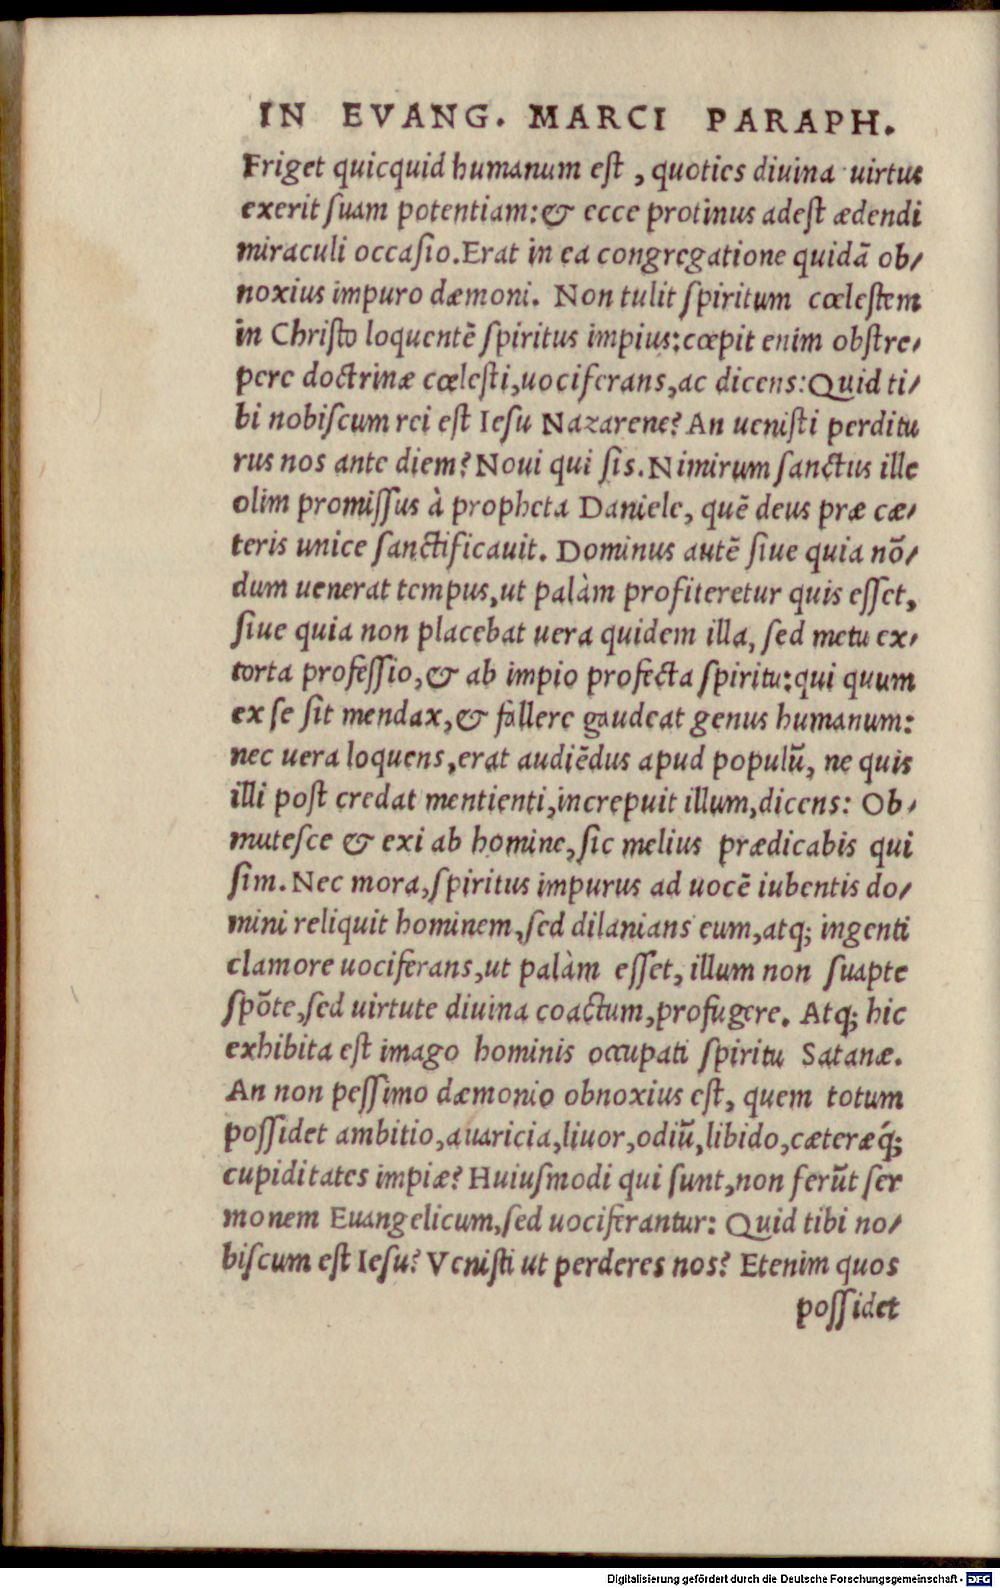 IN EVANG. MARCI PARAPH.
Friget quicquid humanum est, quoties diuina uirtus
exerit suam potentiam: & ecce protinus adest ædendi
miraculi occasio. Erat in ea congregatione quidã ob-
noxius impuro dæmoni. Non tulit spiritum cœlestem
in Christo loquentẽ spiritus impius: cœpit enim obstre-
pere doctrinæ cœlesti, uociferans, ac dicens: Quid ti-
bi nobiscum rei est Iesu Nazarene? An uenisti perditu
rus nos ante diem? Noui qui sis. Nimirum sanctus ille
olim promissus à propheta Daniele, quẽ deus præ cæ-
teris unice sanctificauit. Dominus autẽ siue quia nõ-
dum uenerat tempus, ut palàm profiteretur quis esset,
siue quia non placebat uera quidem illa, sed metu ex-
torta professio, & ab impio profecta spiritu: qui quum
ex se sit mendax, & fallere gaudeat genus humanum:
nec uera loquens, erat audiẽdus apud populũ, ne quis
illi post credat mentienti, increpuit illum, dicens: Ob-
mutesce & exi ab homine, sic melius prædicabis qui
sim. Nec mora, spiritus impurus ad uocẽ iubentis do-
mini reliquit hominem, sed dilanians eum, atq; ingenti
clamore uociferans, ut palàm esset, illum non suapte
spõte, sed uirtute diuina coactum, profugere. Atq; hic
exhibita est imago hominis occupati spiritu Satanæ.
An non pessimo dæmonio obnoxius est, quem totum
possidet ambitio, auaricia, liuor, odiũ, libido, cæteræq́;
cupiditates impiæ? Huiusmodi qui sunt, non ferũt ser
monem Euangelicum, sed uociferantur: Quid tibi no-
biscum est Iesu? Venisti ut perderes nos? Etenim quos
possidet
Digitalisierung gefördert durch die Deutsche Forschungsgemeinschaft - DFG